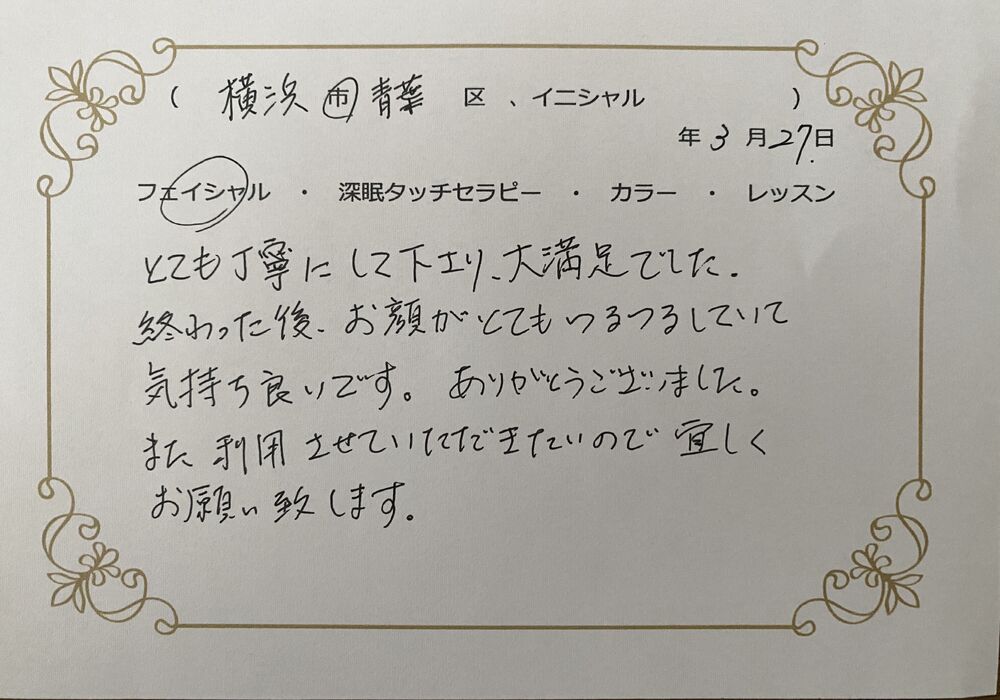 ( 横浜 市 青葉 区 、イニシャル )
年 3 月 27. 日
フェイシャル ・ 深眠タッチセラピー ・ カラー ・ レッスン
とても丁寧にして下さり、大満足でした.
終わった後、お顔がとてもつるつるしていて
気持ち良いです。ありがとうございました。
また利用させていただきたいので宜しく
お願い致します。